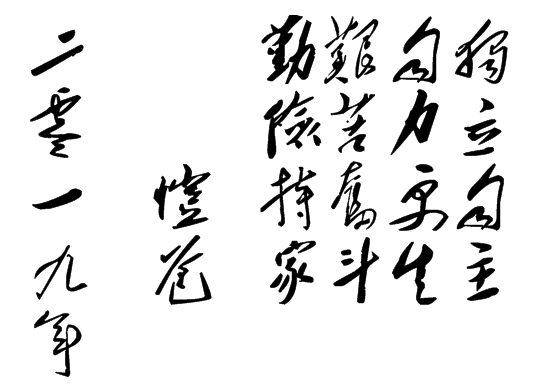 獨立自主
自力更生
艱苦奮斗
勤儉持家
二零一九年